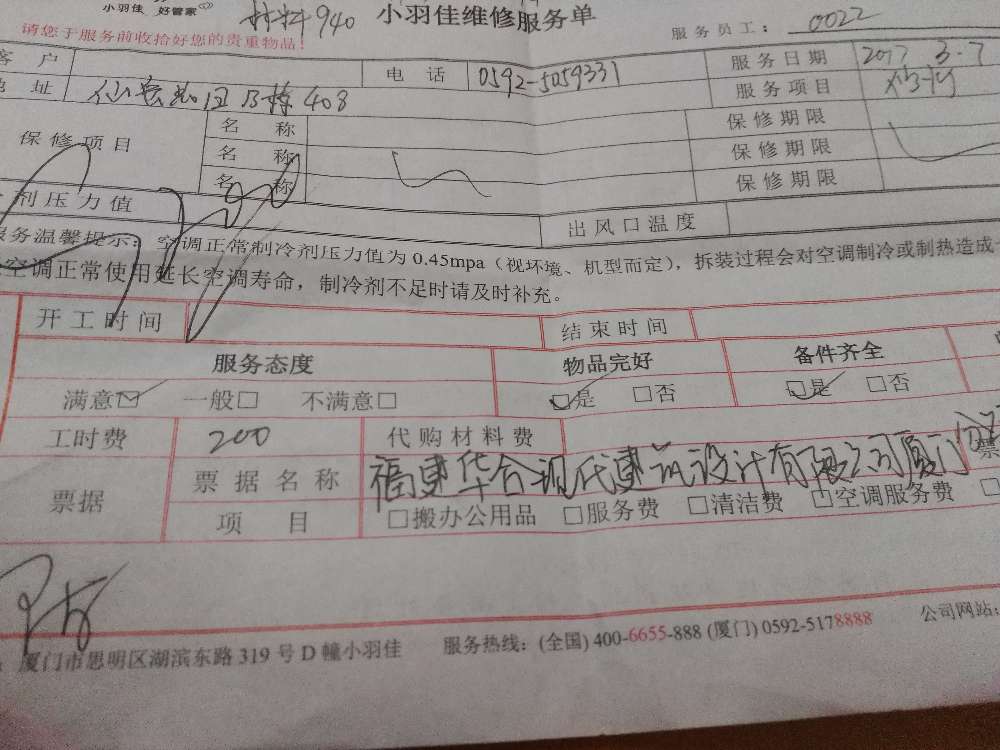 小羽佳 好管家
材料940
小羽佳维修服务单
服务员工: 0022
请您于服务前收拾好您的贵重物品!
客户
电话 0592-5059331
服务日期 2017 3.7
地址 B栋408
服务项目
保修项目 名称 保修期限
名称 保修期限
名称 保修期限
剂压力值
出风口温度
服务温馨提示: 空调正常制冷剂压力值为 0.45mpa（视环境、机型而定），拆装过程会对空调制冷或制热造成
空调正常使用延长空调寿命，制冷剂不足时请及时补充。
开工时间 结束时间
服务态度 物品完好 备件齐全
满意☑ 一般□ 不满意□ ☑是 □否 ☑是 □否
工时费 200 代购材料费
票据 票据名称 福建华合现代建筑设计有限公司厦门 票
项目 □搬办公用品 □服务费 □清洁费 □空调服务费
厦门市思明区湖滨东路 319 号 D 幢小羽佳 服务热线: (全国) 400-6655-888 (厦门) 0592-5178888 公司网站: